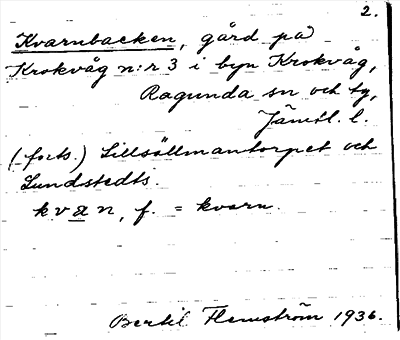 2.
Kvarnbacken, gård på
Krokvåg n:r 3 i byn Krokvåg,
Ragunda sn och tg,
Jämtl. l.
(forts.) Lillsällmantorpet och
Lundstedts.
kvan, f. = kvarn.
Bertil Flemström 1936.